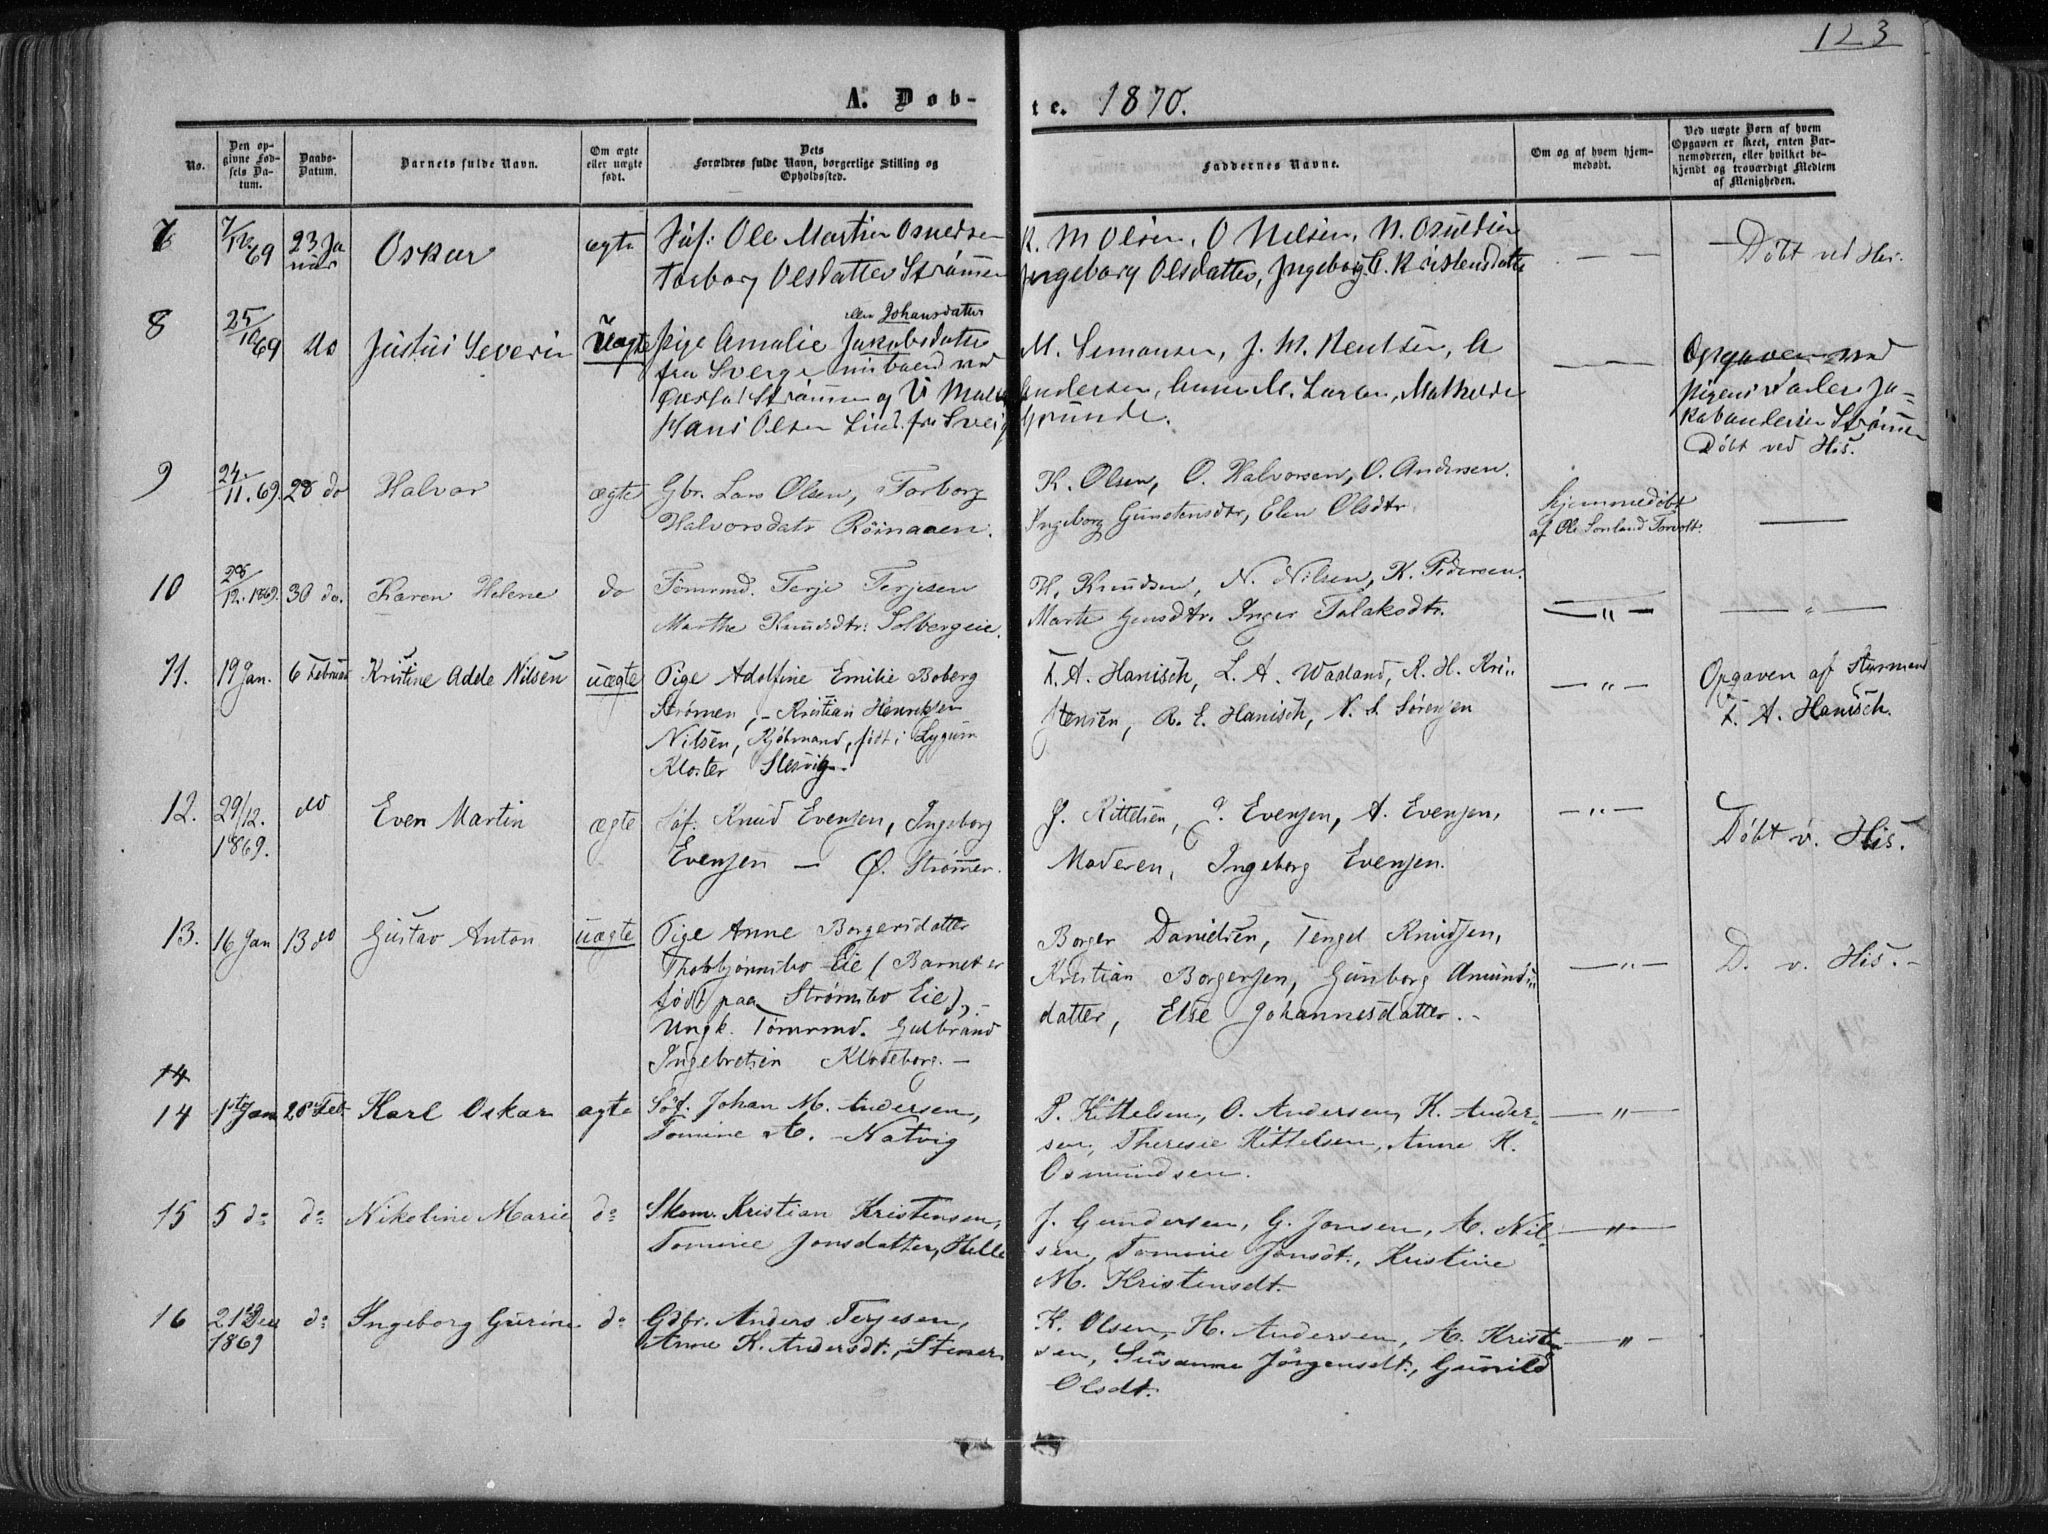 123
A. Døb-
te. 1870.
No.
Den op-
givne Fød-
sels Da-
tum.
Daabs-
Datum.
Barnets fulde Navn.
Om ægte
eller uægte
født.
Dets
Forældres fulde Navn, borgerlige Stilling og
Opholdssted.
Faddernes Navne.
Om og af hvem hjem-
medøbt.
Ved uægte Børn af hvem
Opgaven er skeet, enten Bar-
nemoderen, eller hvilket be-
kjendt og troværdigt Medlem
af Menigheden.
7
7/12 69
23 Ja
nuar
Oskar
ægte
Søf: Ole Martin Osuldsen
Torborg Olsdatter Strømmen
K. M Olsen, O Nilsen, N. Osuldsen
Ingeborg Olsdatter, Ingeborg C. Kristensdatter
— —
Døbt ved His.
8
25/10 69
do
Justus Severin
Uægte
eller Johansdatter
Pige Amalie Jakobsdatter
fra Sverge
Strømmen og
Hans Olsen Lind. fra Sverig
M. Simonsen, J. M. Knutsen, A
Andersen, Anne M. Larsen, Mathilde
Grunde.
— —
Opgaven ved
Pigens Fader Ja-
kob Andersen Strømmen
Døbt ved His.
9
24/11. 69.
28 do
Halvor
ægte
Gbr. Lars Olsen, Torborg
Halvorsdatr Röinaaen.
K. Olsen, O. Halvorsen, O. Andersen.
Ingeborg Gunstensdtr, Elen Olsdtr
hjemmedøbt
af Ole Sonland Torvolt.
—
10
28/12. 1869.
30 do.
Karen Helene
do
Tömrmd. Terje Terjesen
Marthe Knudsdtr: Solbergeie.
H. Knudsen, N. Nilsen, K. Pedersen.
Marte Jensdtr. Inger Talaksdtr.
— „ —
— „ —
11.
19 Jan.
6 Februar
Kristine Adde Nilsen
uægte
Pige Adolfine Emilie Boberg
Strømen, – Kristian Henriksen
Nilsen, Kjøbmand, født i Lygum
Kloster Slesvig.
F. A. Hanisch, L. A. Wasland, R. H. Kri-
stensen, R. E. Hanisch, N. S. Sørensen
— „ —
Opgaven af Styrmand
F. A. Hanisch.
12.
29/12.
1869.
do
Even Martin
ægte
Søf. Knud Evensen, Ingeborg
Evensen — Ø. Strømmen.
J. Kittelsen, J. Evensen, A. Evensen,
Moderen, Ingeborg Evensen.
— „ —
Døbt v. His.
13.
16 Jan
13 do
Gustav Anton
uægte
Pige Anne Borgersdatter
Thorbjønnsbo Eie (Barnet er
født paa Strømsbo Eie), –
Ungk. Tømrmd. Gulbrand
Ingebretsen Klodeborg. –
Borger Danielsen, Tengel Knudsen,
Kristian Borgersen, Gunborg Amunds-
datter, Else Johannesdatter. –
— „ —
D. v. His. –
14
14
1ste Jan
28 Feb
Karl Oskar
ægte
Söf. Johan M. Andersen,
Tomine A. – Natvig
P. Kittelsen, O. Andersen, K. Ander-
sen, Theresie Kittelsen, Anne K.
Osmundsen.
— „ —
15
5 do
do
Nikoline Marie
do
Skom. Kristian Kristensen,
Tomine Jonsdatter, Helle
J. Gundersen, G. Jonsen, A. Nil-
sen, Tomine Jonsdt., Kristine
M. Kristensdt.
— „ —
16
21 Dec
1869
do
Ingeborg Gurine
do
Gdbr. Anders Terjesen,
Anne K. Andersdt., Stener
K. Olsen, H. Andersen, A. Kristen-
sen, Susanne Jørgensdt., Gunild
Olsdt.
— „ —